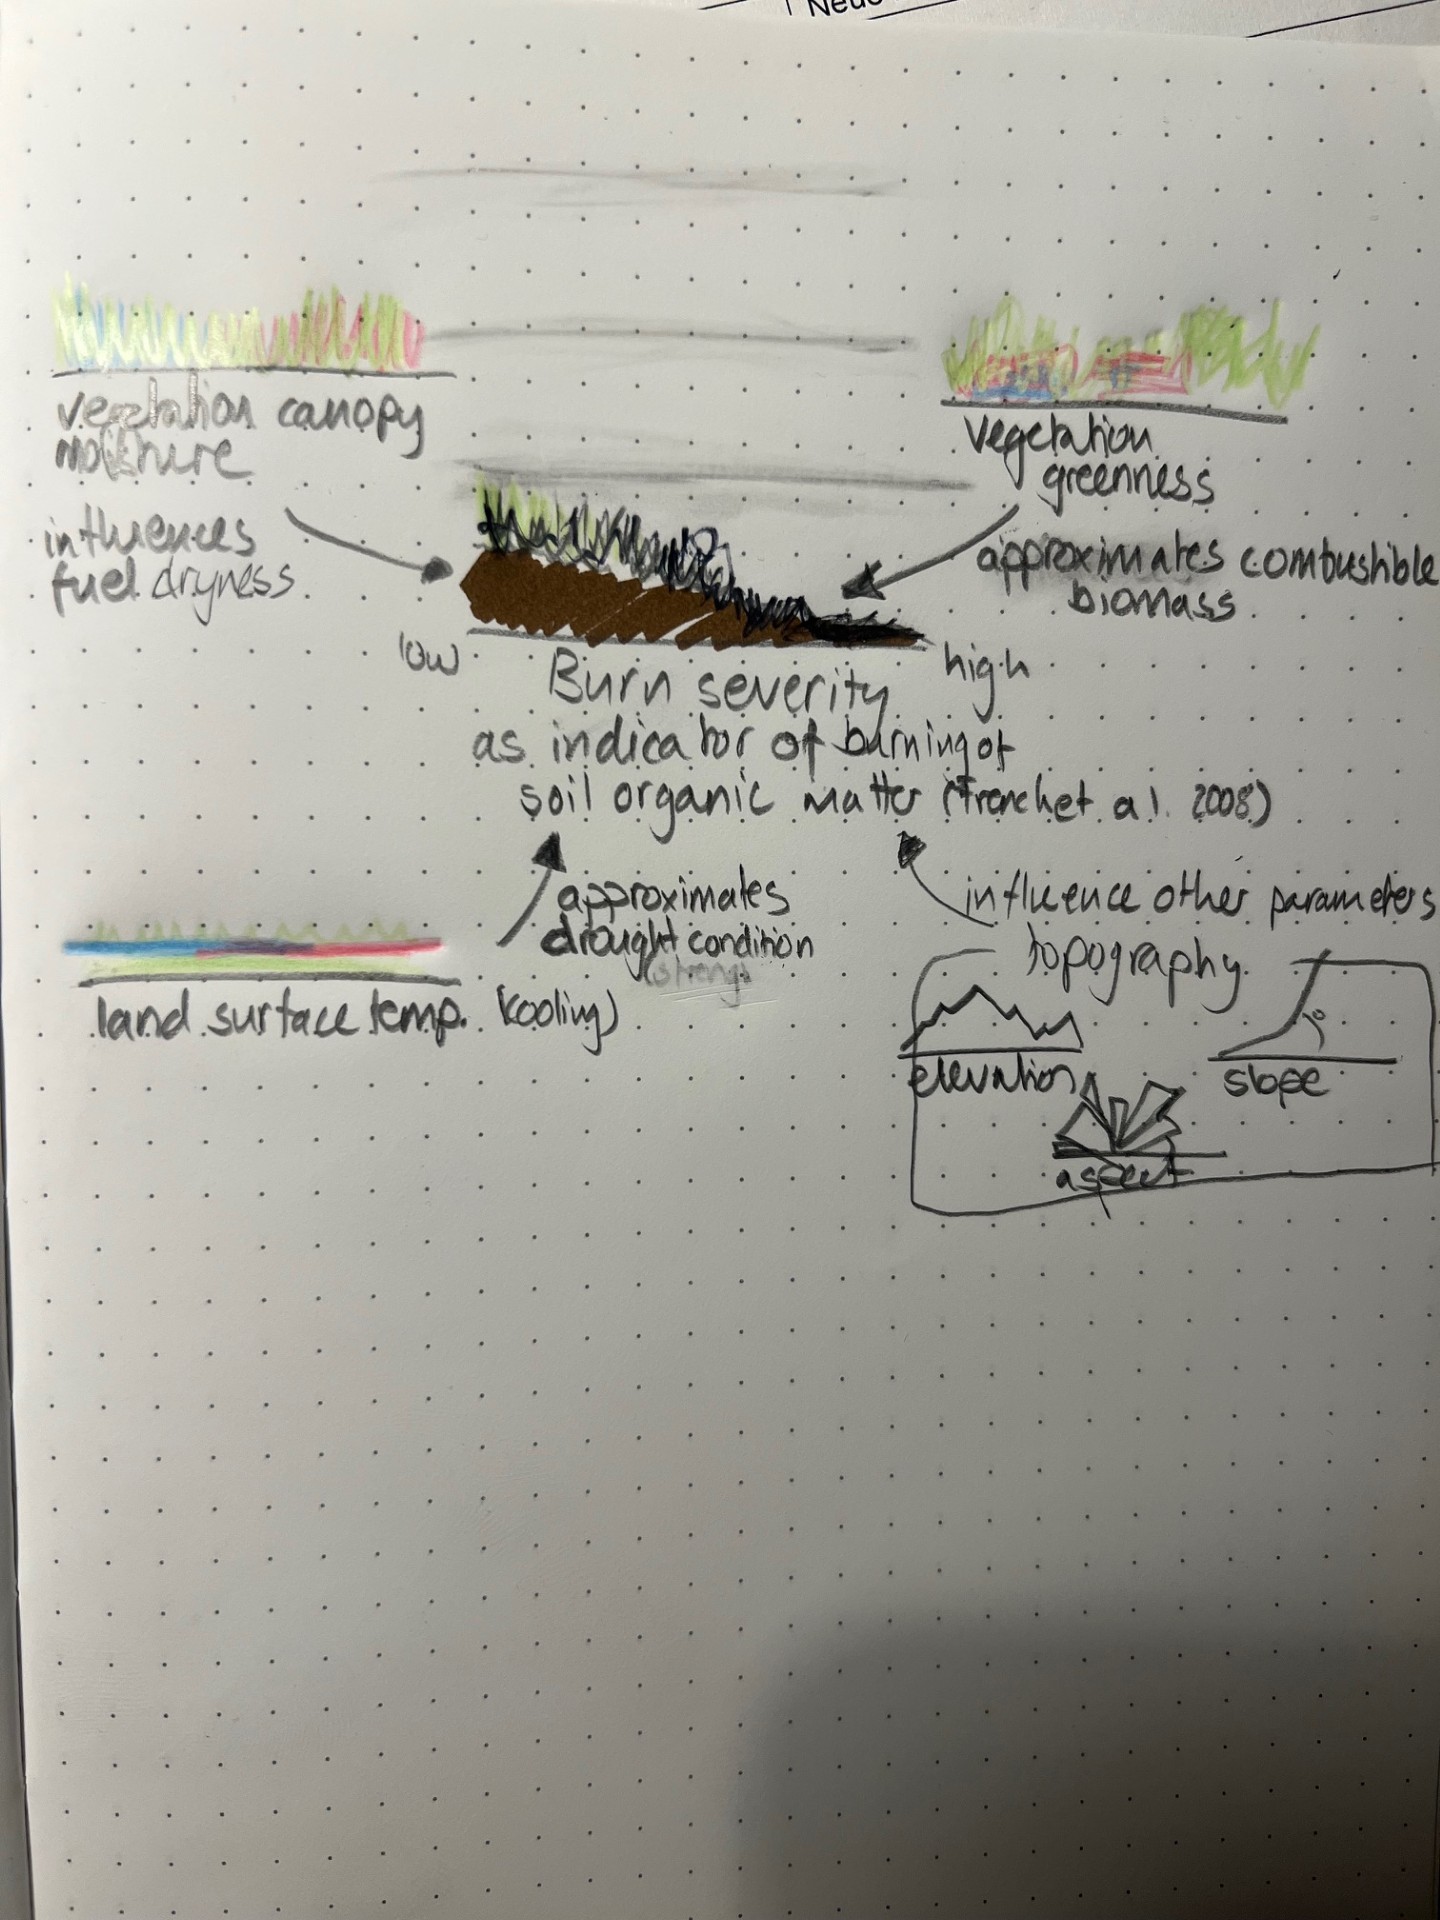 Neue
vegetation canopy
moisture
influences
fuel dryness
vegetation
greenness
approximates combustible
biomass
low
high
Burn severity
as indicator of burning of
soil organic matter (French et al. 2008)
approximates
drought condition
land surface temp. (cooling)
influence other parameters
topography
elevation
slope
aspect